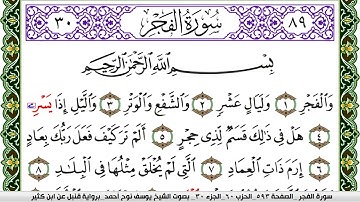 ٣٠ سُورَةُ الْفَجْرِ ٨٩
بِسْمِ اللَّهِ الرَّحْمَٰنِ الرَّحِيمِ
وَالْفَجْرِ ١ وَلَيَالٍ عَشْرٍ ٢ وَالشَّفْعِ وَالْوَتْرِ ٣ وَالَّيْلِ إِذَا يَسْرِۦ
٤ هَلْ فِي ذَٰلِكَ قَسَمٌ لِّذِي حِجْرٍ ٥ أَلَمْ تَرَ كَيْفَ فَعَلَ رَبُّكَ بِعَادٍ
٦ إِرَمَ ذَاتِ الْعِمَادِ ٧ الَّتِي لَمْ يُخْلَقْ مِثْلُهَا فِي الْبِلَٰدِ ٨
سورة الفجر _ الصفحة ٥٩٣ _ الحزب ٦٠ _ الجزء ٣٠ _ بصوت الشيخ يوسف نوح أحمد _ برواية قنبل عن ابن كثير